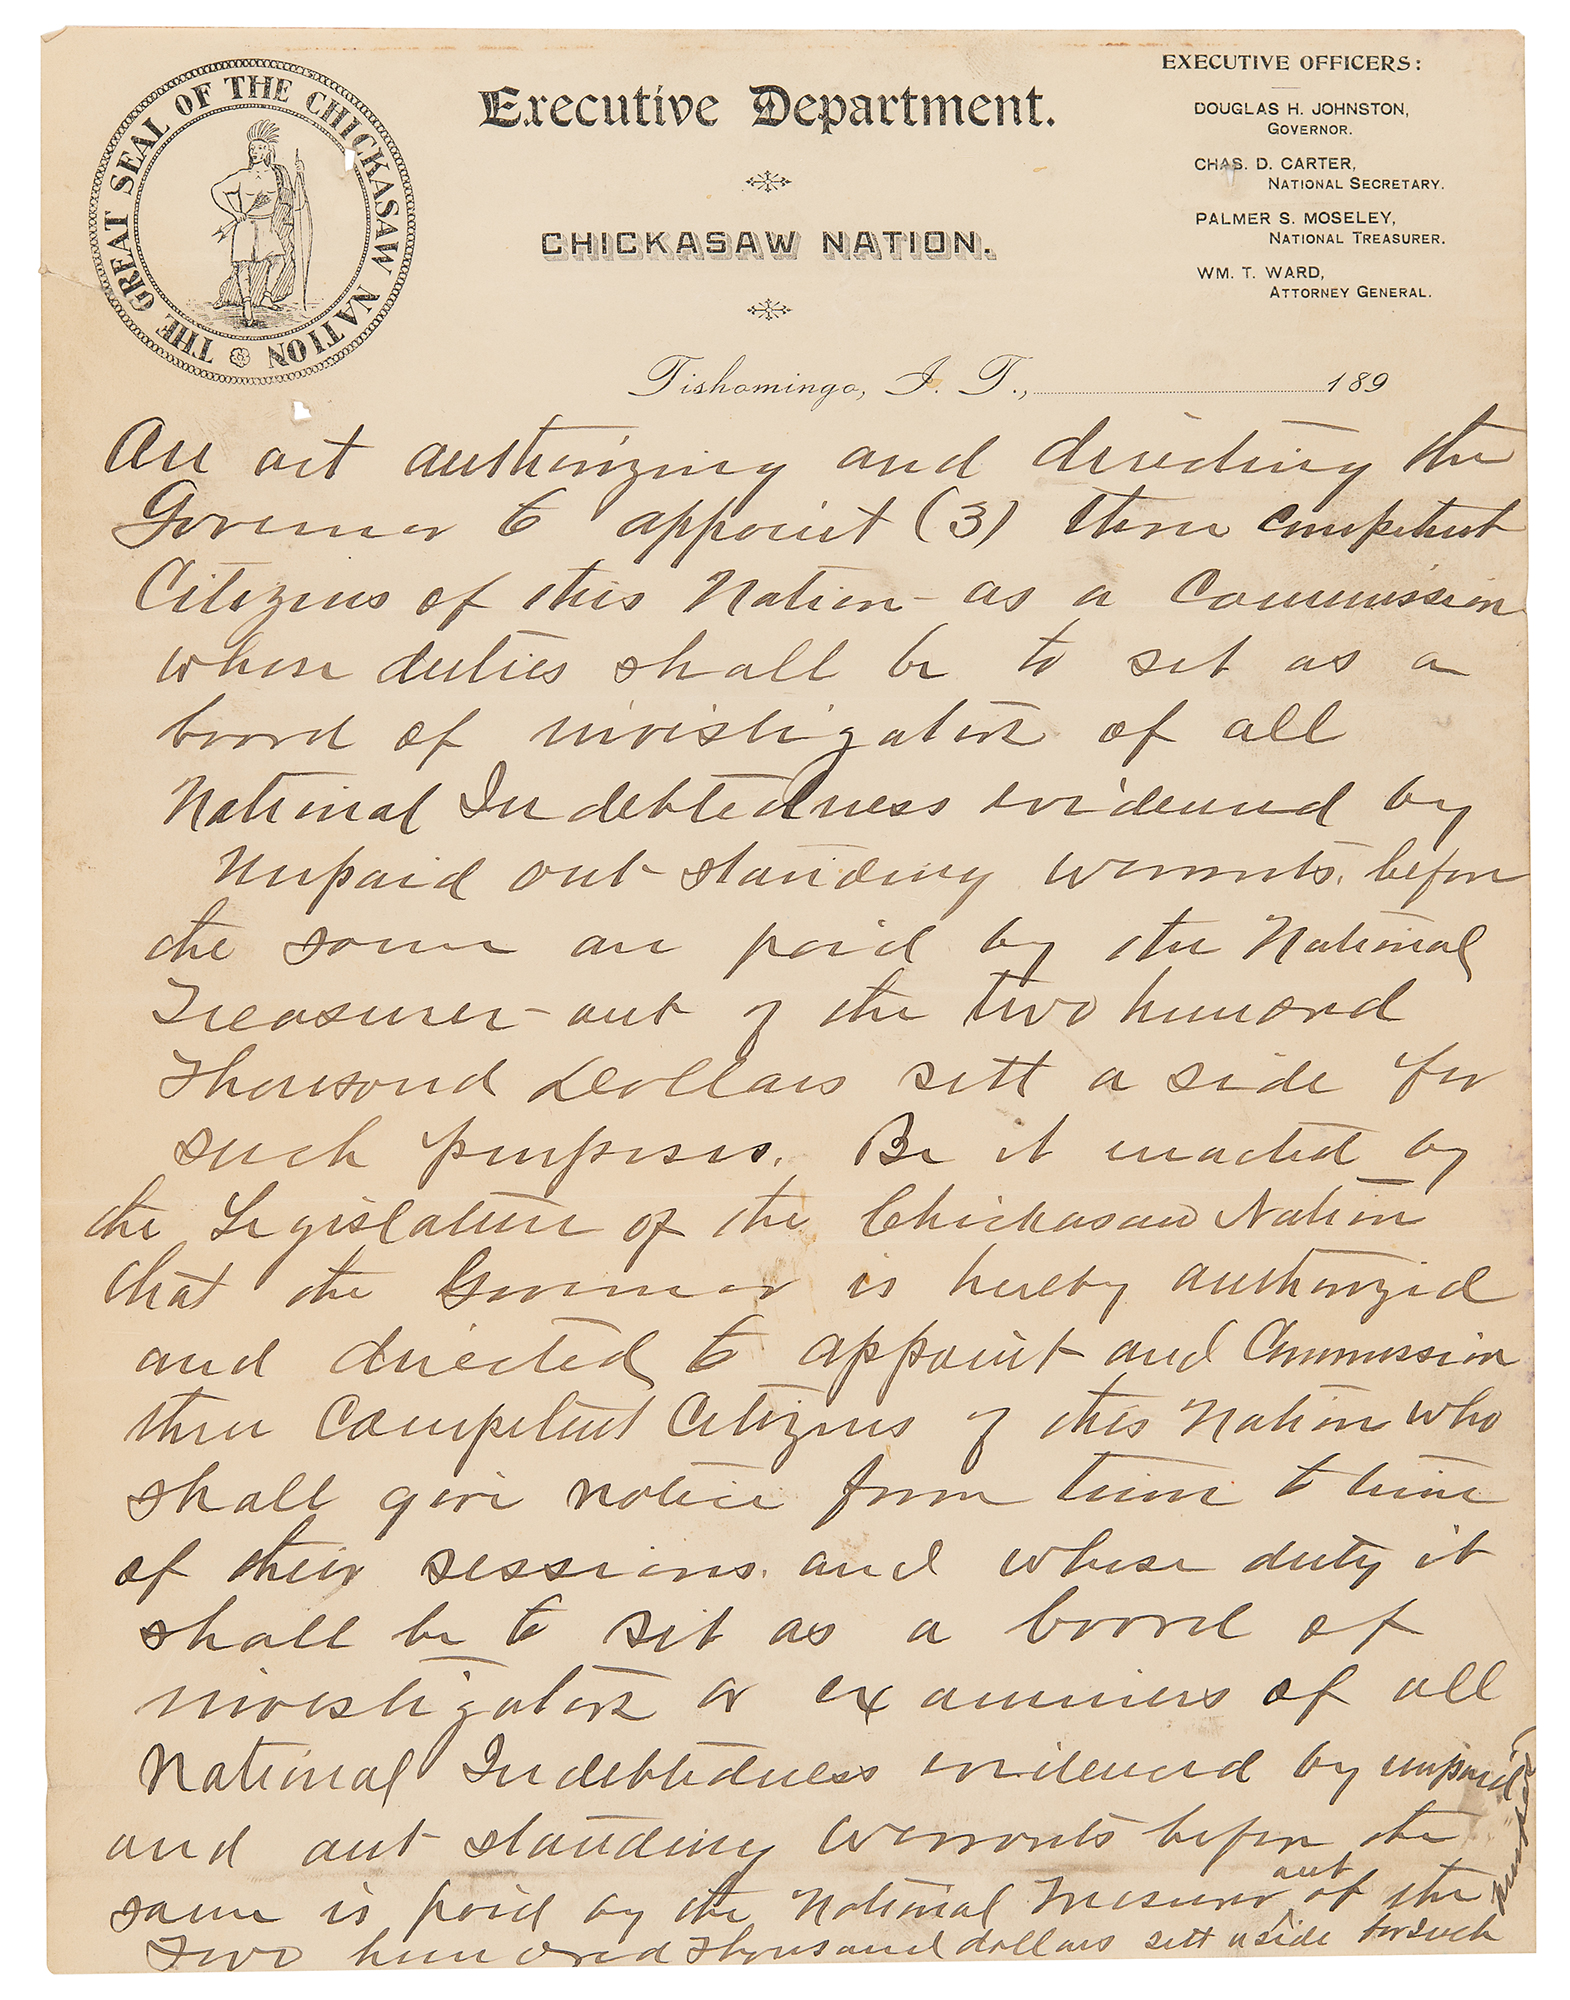 THE GREAT SEAL OF THE CHICKASAW NATION
Executive Department.
CHICKASAW NATION.
EXECUTIVE OFFICERS:
DOUGLAS H. JOHNSTON,
GOVERNOR.
CHAS. D. CARTER,
NATIONAL SECRETARY.
PALMER S. MOSELEY,
NATIONAL TREASURER.
WM. T. WARD,
ATTORNEY GENERAL.
Tishomingo, I. T., 189
An act authorizing and directing the
Governor to appoint (3) three competent
Citizens of this Nation as a Commission
whose duties shall be to set as a
board of investigators of all
National Indebtedness evidenced by
unpaid out standing warrants, before
the same are paid by the National
Treasurer - out of the two hundred
Thousand Dollars sett a side for
such purposes. Be it enacted by
the Legislature of the Chickasaw Nation
that the Governor is hereby authorized
and directed to appoint and Commission
three Competent Citizens of this Nation who
shall give notice from time to time
of their sessions. and whose duty it
shall be to sit as a board of
investigators or examiners of all
National Indebtedness evidenced by unpaid
and out standing warrants before the
same is paid by the National Treasurer out of the
Two hundred Thousand dollars sett aside for such
purposes